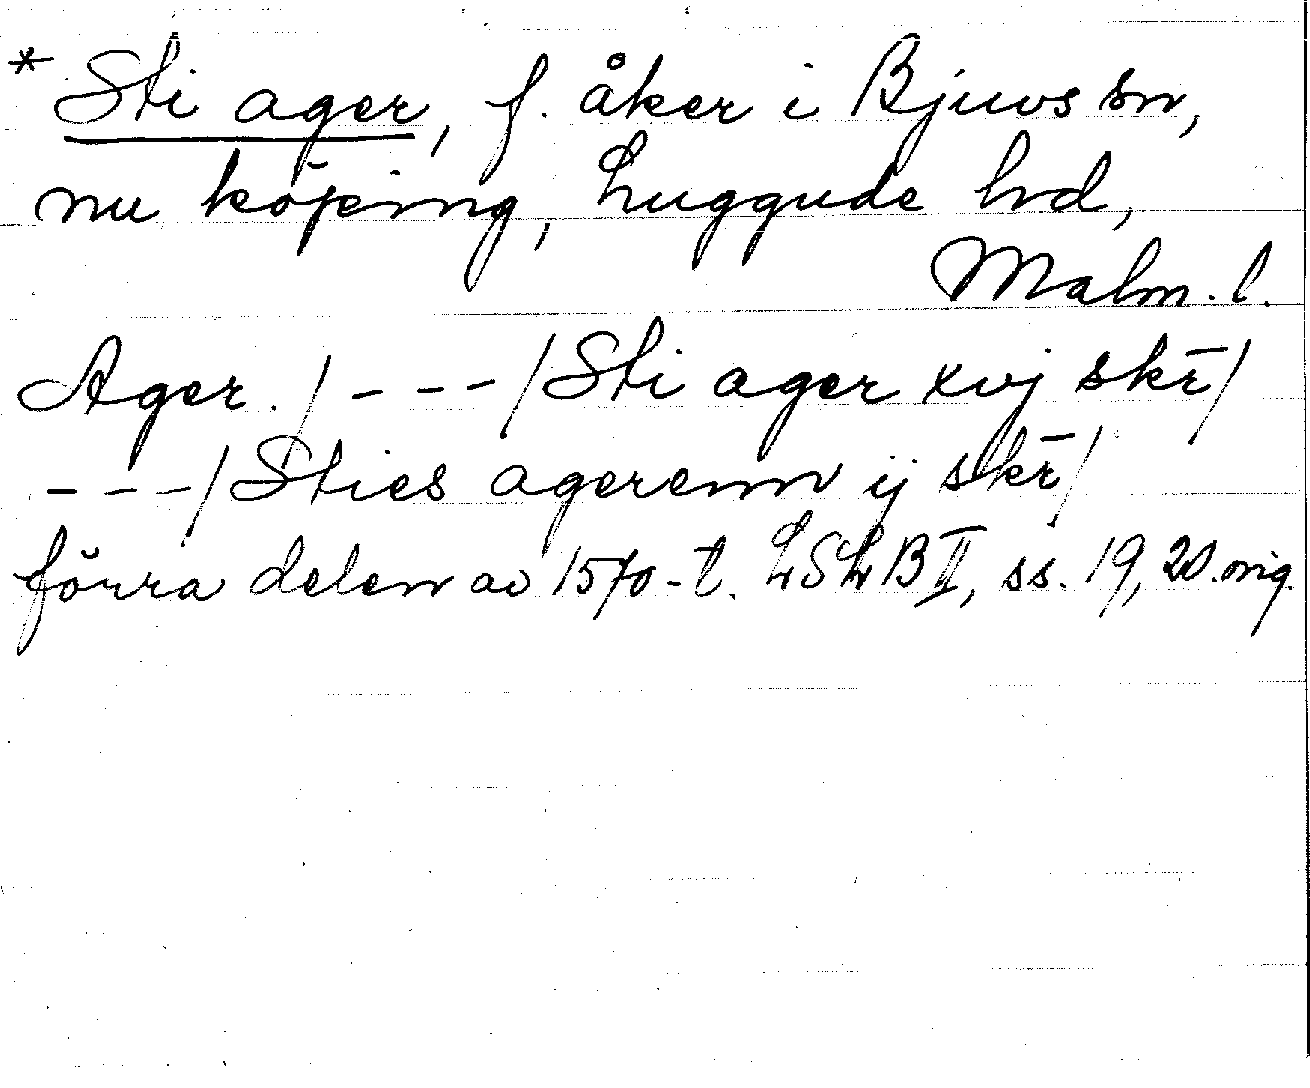 * Sti ager, f. åker i Bjuvs sn,
nu köping, Luggude hd,
Malm. l.
Ager. / - - - / Sti ager xvj skr̄ /
- - - / Sties agerenn ij skr̄ /
förra delen av 1570-t. LSLB II, ss. 19, 20. orig.